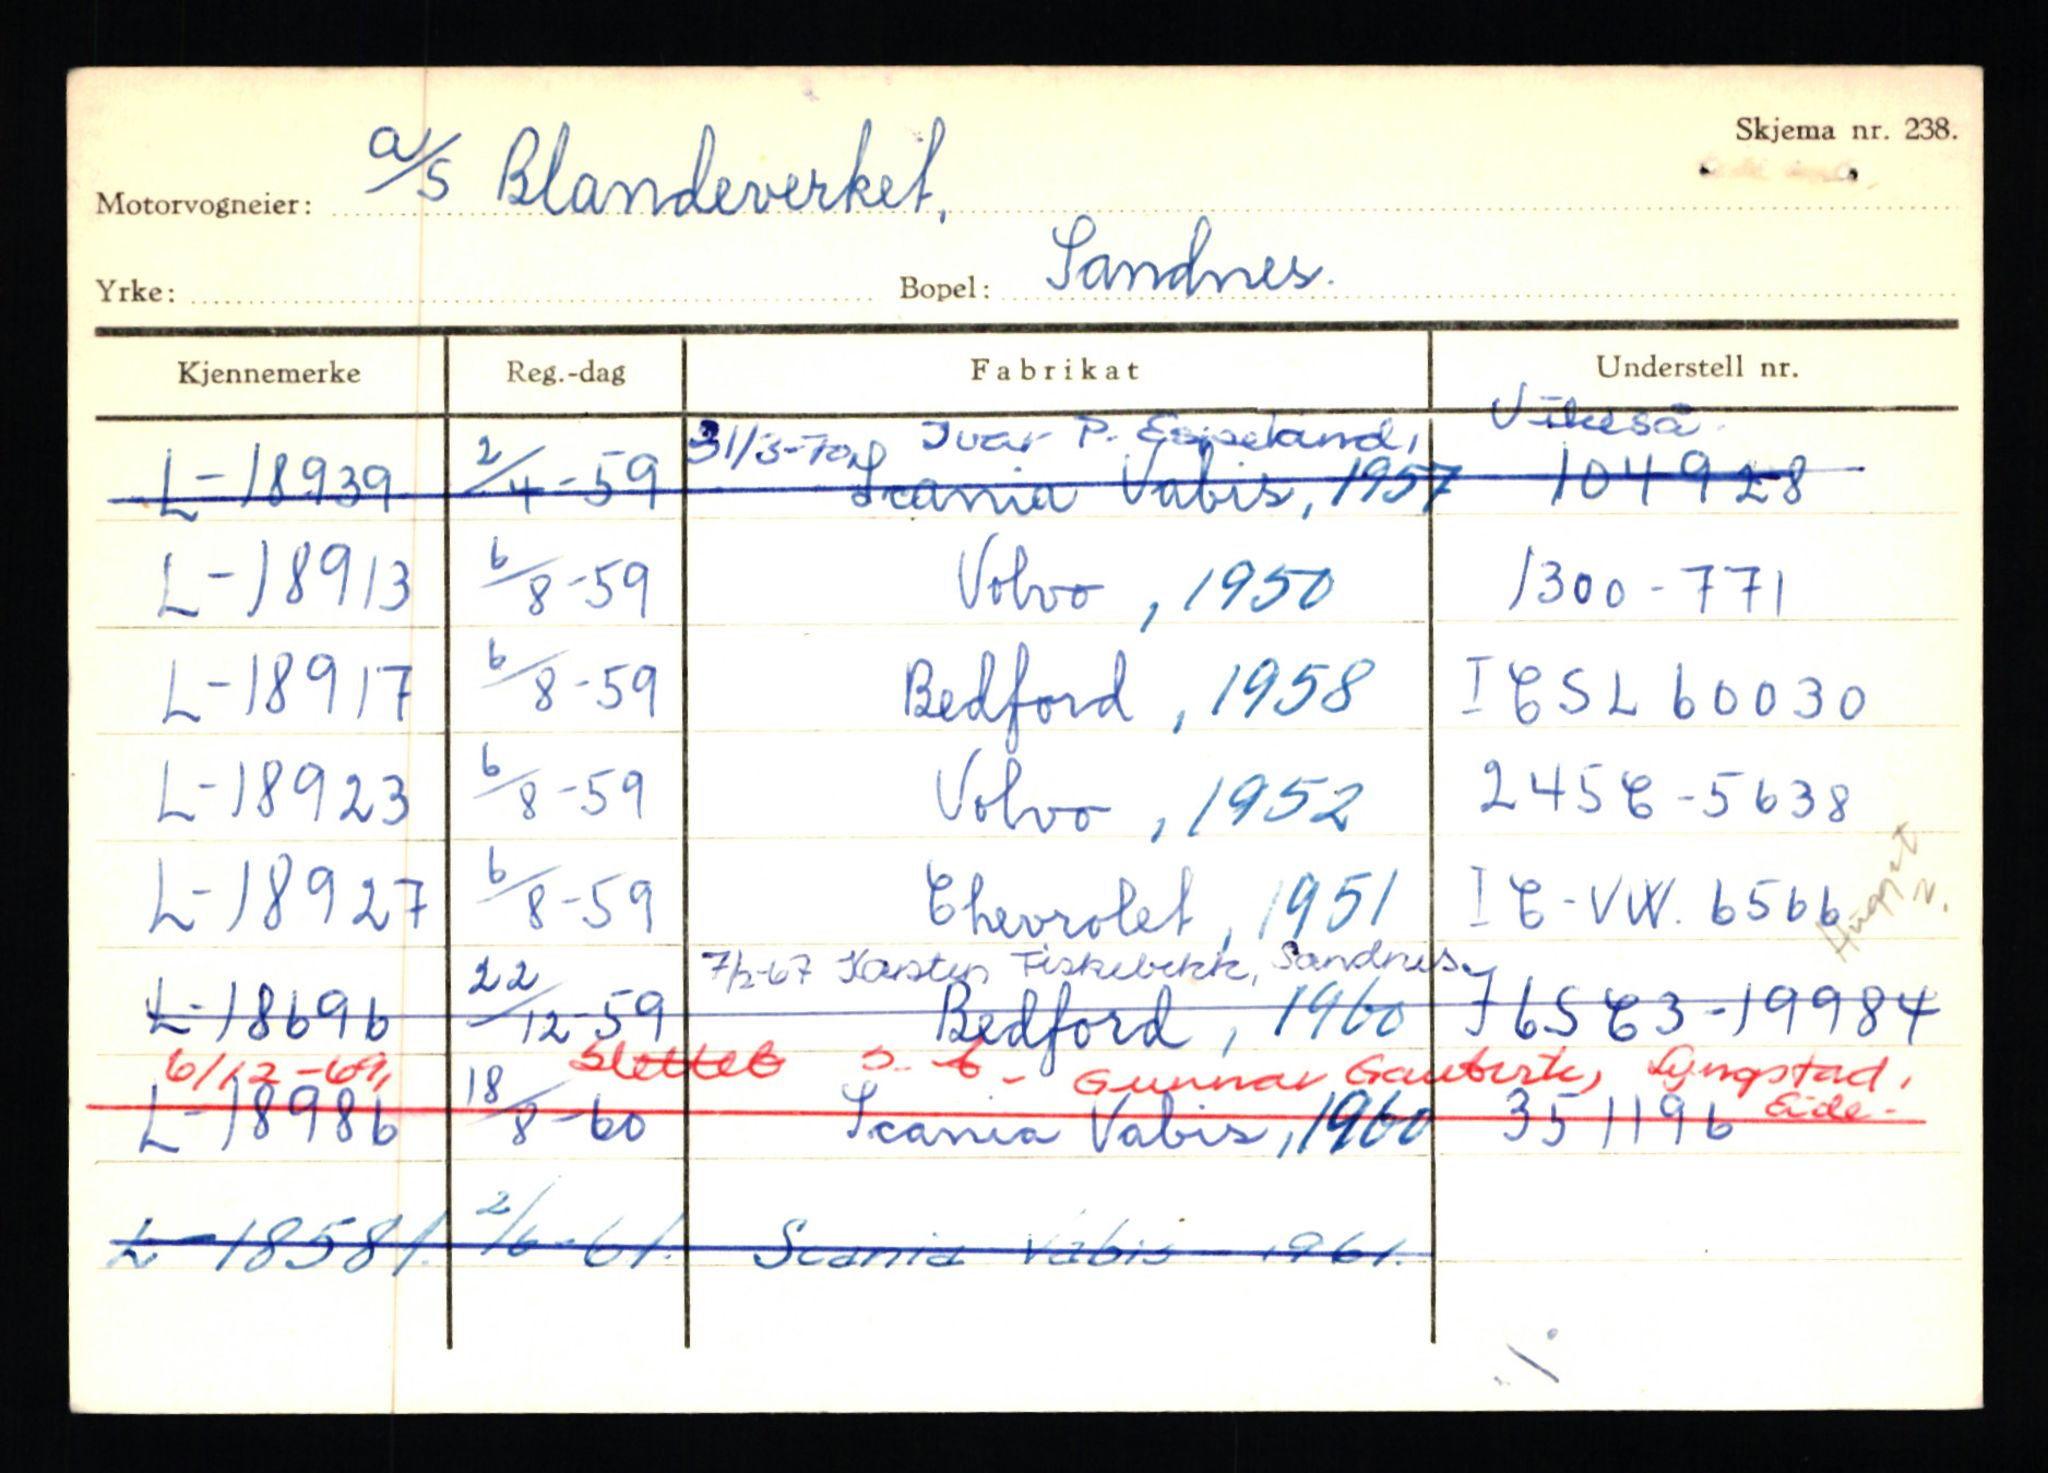 Skjema nr. 238.
Motorvogneier: a/s Blandeverket,
Yrke: Bopel: Sandnes.
Kjennemerke Reg.-dag Fabrikat Understell nr.
31/3-70, Ivar P. Espeland, Vikeså.
L-18939 2/4-59 Scania Vabis, 1957 104928
L-18913 6/8-59 Volvo, 1950 1300-771
L-18917 6/8-59 Bedford, 1958 I C S L 60030
L-18923 6/8-59 Volvo, 1952 245C-5638
L-18927 6/8-59 Chevrolet, 1951 I C-VW. 6566
7/2-67 Karsten Fiskebekk, Sandnes.
L-18696 22/12-59 Bedford, 1960 J6SC3-19984
6/12-69, slettet Gunnar Lyngstad, Eide.
L-18986 18/8-60 Scania Vabis, 1960 351196
L-18581. 2/6-61. Scania Vabis 1961.